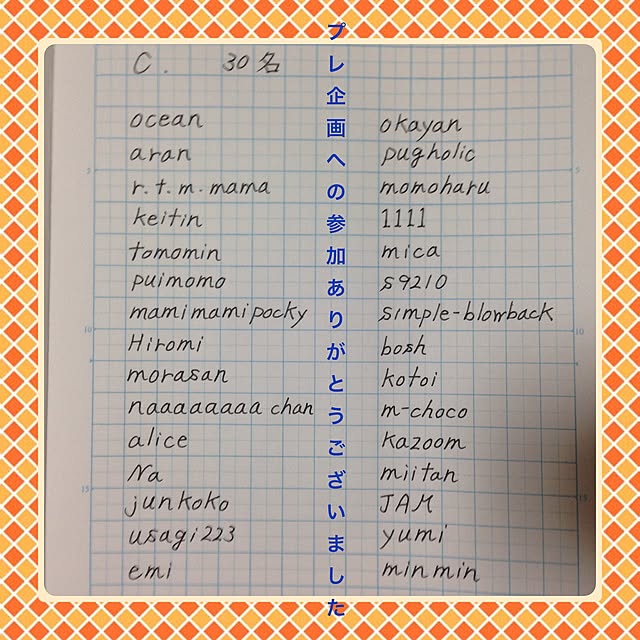 C. 30名
ocean
aran
r.t.m.mama
keitin
tomomin
puimomo
mamimamipocky
Hiromi
morasan
naaaaaaaa chan
alice
Na
junkoko
usagi223
emi
プレ企画への参加ありがとうございました
okayan
pugholic
momoharu
1111
mica
s9210
simple-blowback
bosh
kotoi
m-choco
kazoom
miitan
JAM
yumi
minmin
5
10
15
5
10
15